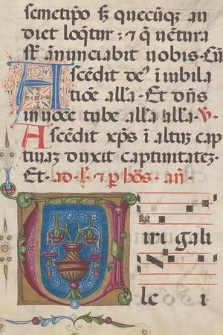 semetipo sʒ quecūqʒ au
diet loq̄tur: ⁊ q̄ uētura
sūt anunciabit uobis. Cū
Ascēdit de' i iubila
tiōe alla. Et dn̄s
in uoce tube alla alla. V
Ascēdit xp̄s i altuʒ cap
tiuaʒ duxit captiuitateʒ.
Et. ad. b̄. ⁊ p̄ hōs. an̄
Viri gali
le i